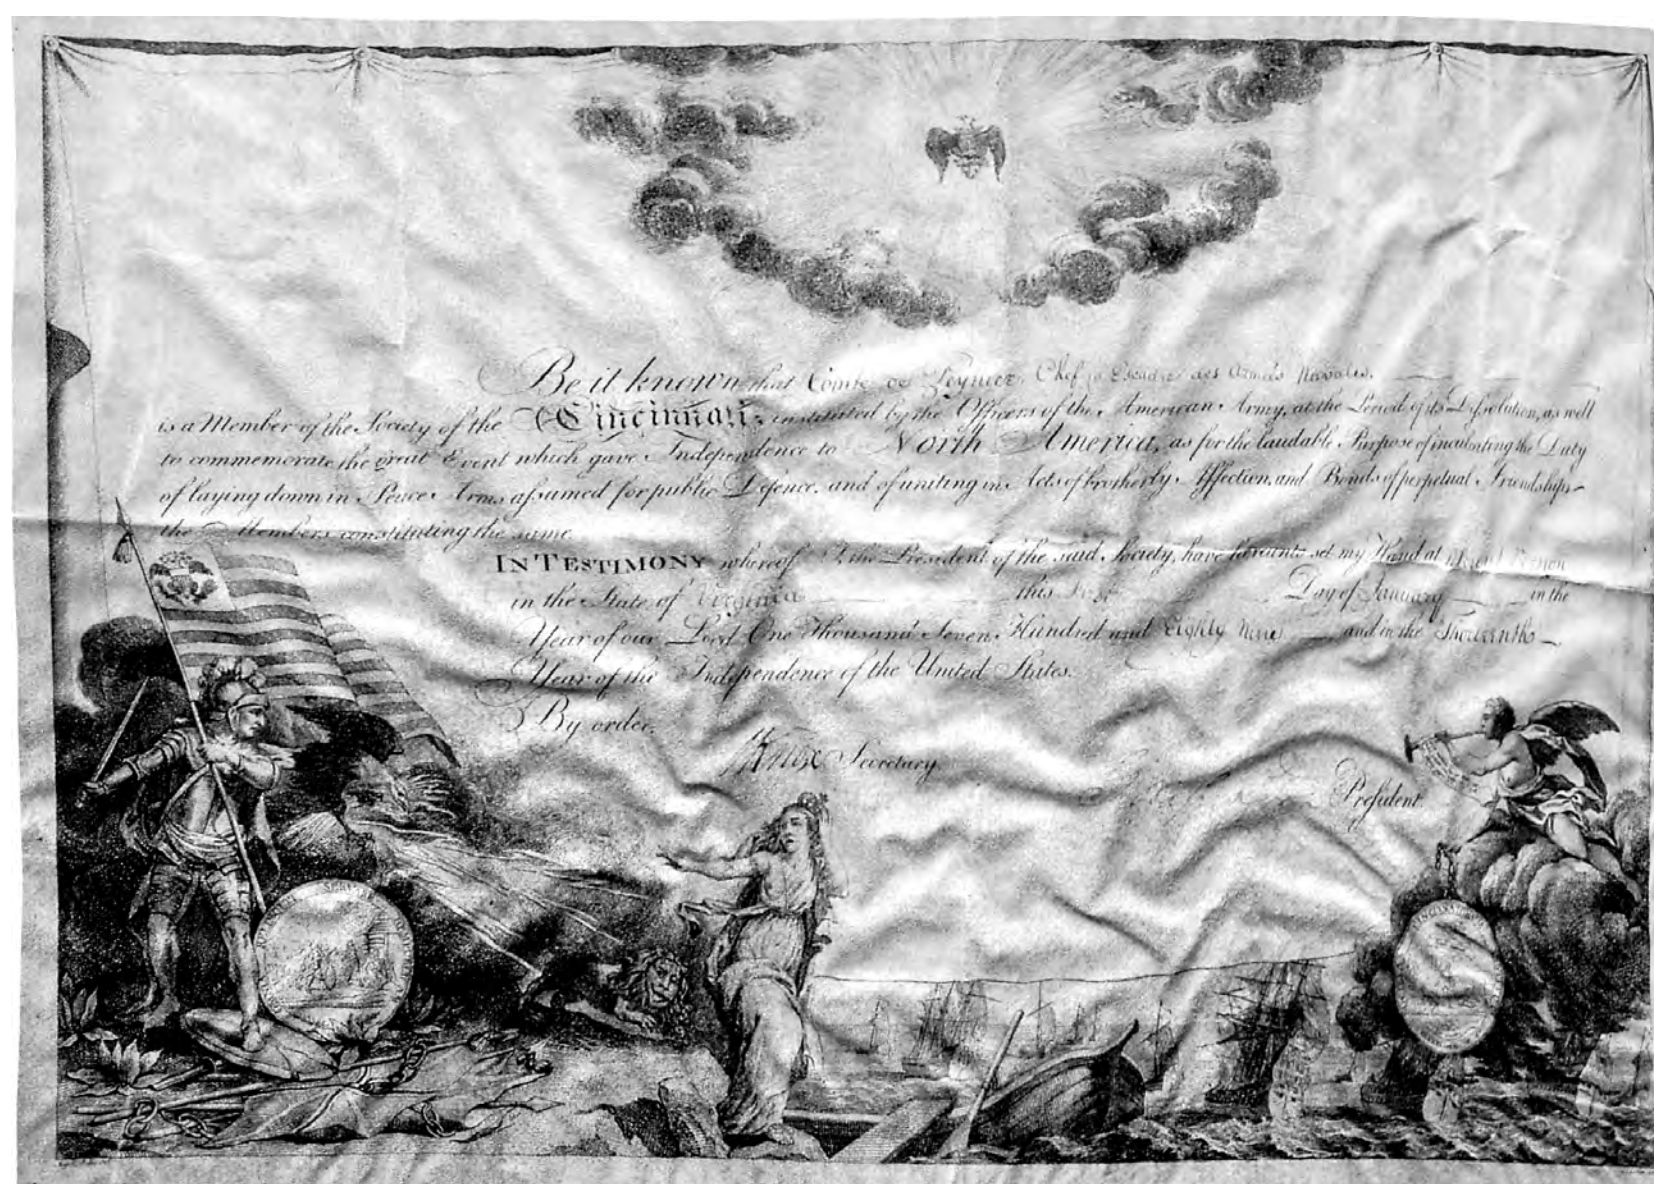 Be it known that Comte de Peynier, Chef d'Escadre des Armés Navales.
is a Member of the Society of the Cincinnati; instituted by the Officers of the American Army, at the Period of its Dissolution, as well
to commemorate the great Event which gave Independence to North America, as for the laudable Purpose of inculcating the Duty
of laying down in Peace Arms assumed for public Defence, and of uniting in Acts of brotherly Affection, and Bonds of perpetual Friendship
the Members constituting the same.
IN TESTIMONY whereof I, the President of the said Society, have hereunto set my Hand at Mount Vernon
in the State of Virginia this First Day of January in the
Year of our Lord One Thousand Seven Hundred and Eighty Nine and in the Thirteenth
Year of the Independence of the United States.
By order,
HKnox Secretary.
President.